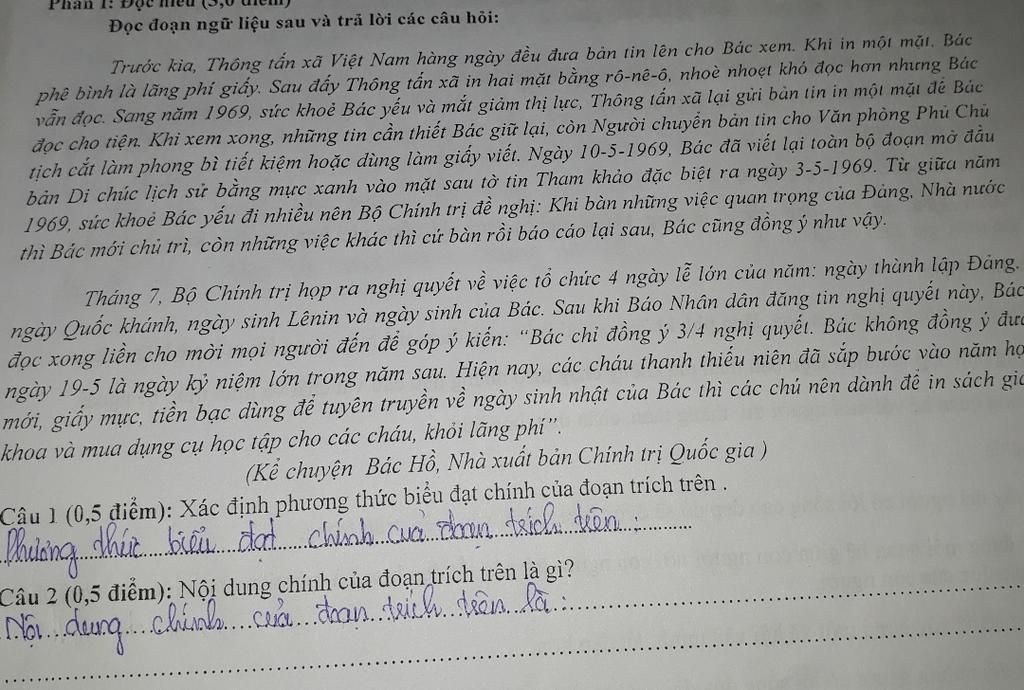 Phần 1: Đọc hiểu (3,0 điểm)
Đọc đoạn ngữ liệu sau và trả lời các câu hỏi:
Trước kia, Thông tấn xã Việt Nam hàng ngày đều đưa bản tin lên cho Bác xem. Khi in một mặt, Bác
phê bình là lãng phí giấy. Sau đấy Thông tấn xã in hai mặt bằng rô-nê-ô, nhoè nhoẹt khó đọc hơn nhưng Bác
vẫn đọc. Sang năm 1969, sức khoẻ Bác yếu và mắt giảm thị lực, Thông tấn xã lại gửi bản tin in một mặt để Bác
đọc cho tiện. Khi xem xong, những tin cần thiết Bác giữ lại, còn Người chuyển bản tin cho Văn phòng Phủ Chủ
tịch cắt làm phong bì tiết kiệm hoặc dùng làm giấy viết. Ngày 10-5-1969, Bác đã viết lại toàn bộ đoạn mở đầu
bản Di chúc lịch sử bằng mực xanh vào mặt sau tờ tin Tham khảo đặc biệt ra ngày 3-5-1969. Từ giữa năm
1969, sức khoẻ Bác yếu đi nhiều nên Bộ Chính trị đề nghị: Khi bàn những việc quan trọng của Đảng, Nhà nước
thì Bác mới chủ trì, còn những việc khác thì cứ bàn rồi báo cáo lại sau, Bác cũng đồng ý như vậy.
Tháng 7, Bộ Chính trị họp ra nghị quyết về việc tổ chức 4 ngày lễ lớn của năm: ngày thành lập Đảng,
ngày Quốc khánh, ngày sinh Lênin và ngày sinh của Bác. Sau khi Báo Nhân dân đăng tin nghị quyết này, Bác
đọc xong liền cho mời mọi người đến để góp ý kiến: “Bác chỉ đồng ý 3/4 nghị quyết. Bác không đồng ý đưa
ngày 19-5 là ngày kỷ niệm lớn trong năm sau. Hiện nay, các cháu thanh thiếu niên đã sắp bước vào năm họ
mới, giấy mực, tiền bạc dùng để tuyên truyền về ngày sinh nhật của Bác thì các chú nên dành để in sách giá
khoa và mua dụng cụ học tập cho các cháu, khỏi lãng phí”.
(Kể chuyện Bác Hồ, Nhà xuất bản Chính trị Quốc gia )
Câu 1 (0,5 điểm): Xác định phương thức biểu đạt chính của đoạn trích trên .
Phương thức biểu đạt chính của đoạn trích trên :
Câu 2 (0,5 điểm): Nội dung chính của đoạn trích trên là gì?
Nội dung chính của đoạn trích trên là :